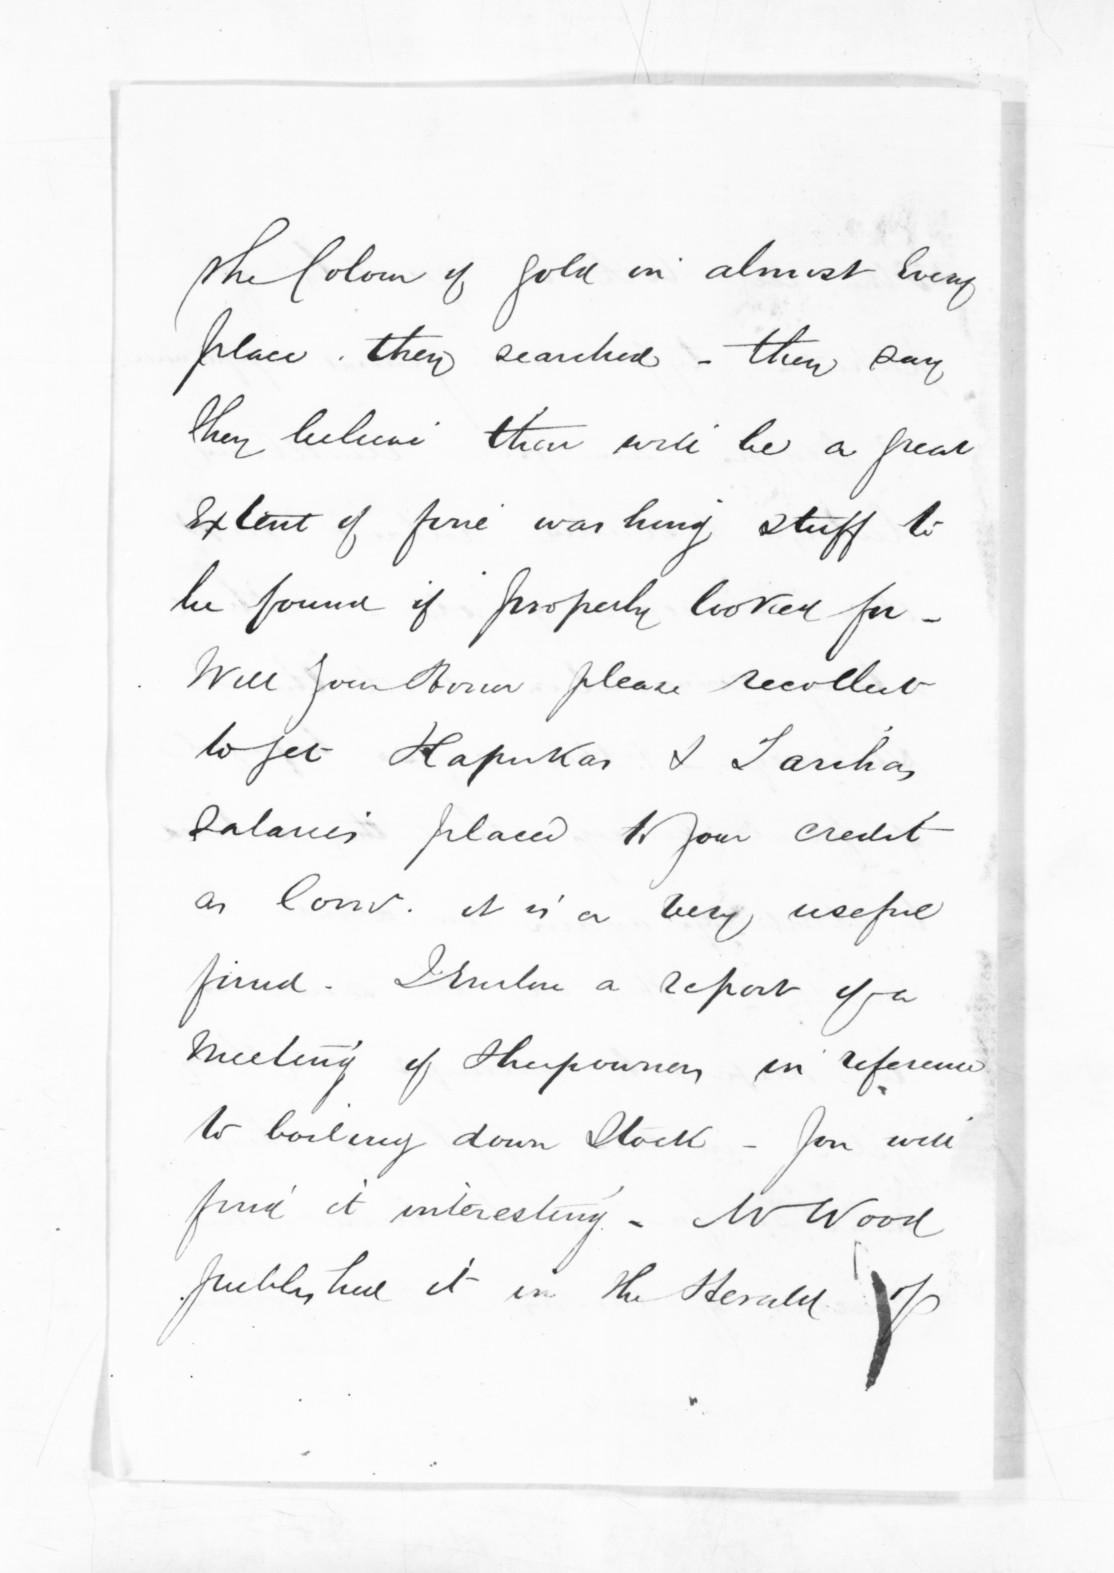 the Colour of gold in almost Every
place. they searched - they say
they believe there will be a great
Extent of fine washing stuff to
be found if properly looked for -
Will your Honor please recollect
to get Hapukas & Tarihas
salaries placed to your credit
as Comr. it is a very useful
fund. I Enclose a report of a
Meeting of Sheepowners in reference
to boiling down Stock - you will
find it interesting - Mr Wood
published it in the Herald of